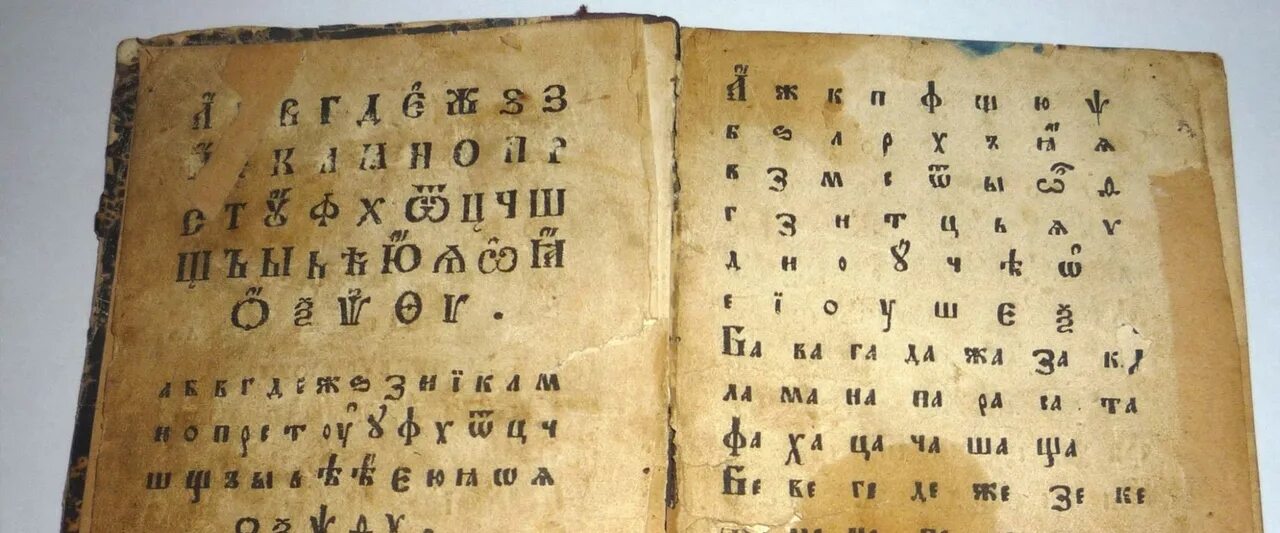 А В Г Д Є Ж Ѕ З
К Л М Н О П Р
С Т Ꙋ Ф Х Ѿ Ц Ч Ш
Щ Ъ Ы Ь Ѣ Ю Ѧ Ѽ Ꙗ
Ѻ Ѯ Ѱ Ѳ Ѵ .
а б в г д е ж ѕ з и ї к л м
н о п р с т оу ꙋ ф х ѿ ц ч
ш щ ъ ы ь ѣ ѣ є ю ꙗ ѡ ѧ
ѻ ѯ ѱ ѳ ѵ .
А ж к п ф щ ю ѱ
б ѕ л р х ъ ꙗ ѧ
в з м с ѿ ы ѽ ѳ
г з н т ц ь ѧ ѵ
д и о ꙋ ч ѣ ѡ
е ї о у ш є ѯ
Ба ва га да жа за ка
ла ма на па ра са та
фа ха ца ча ша ща
Бе ве ге де же зе ке